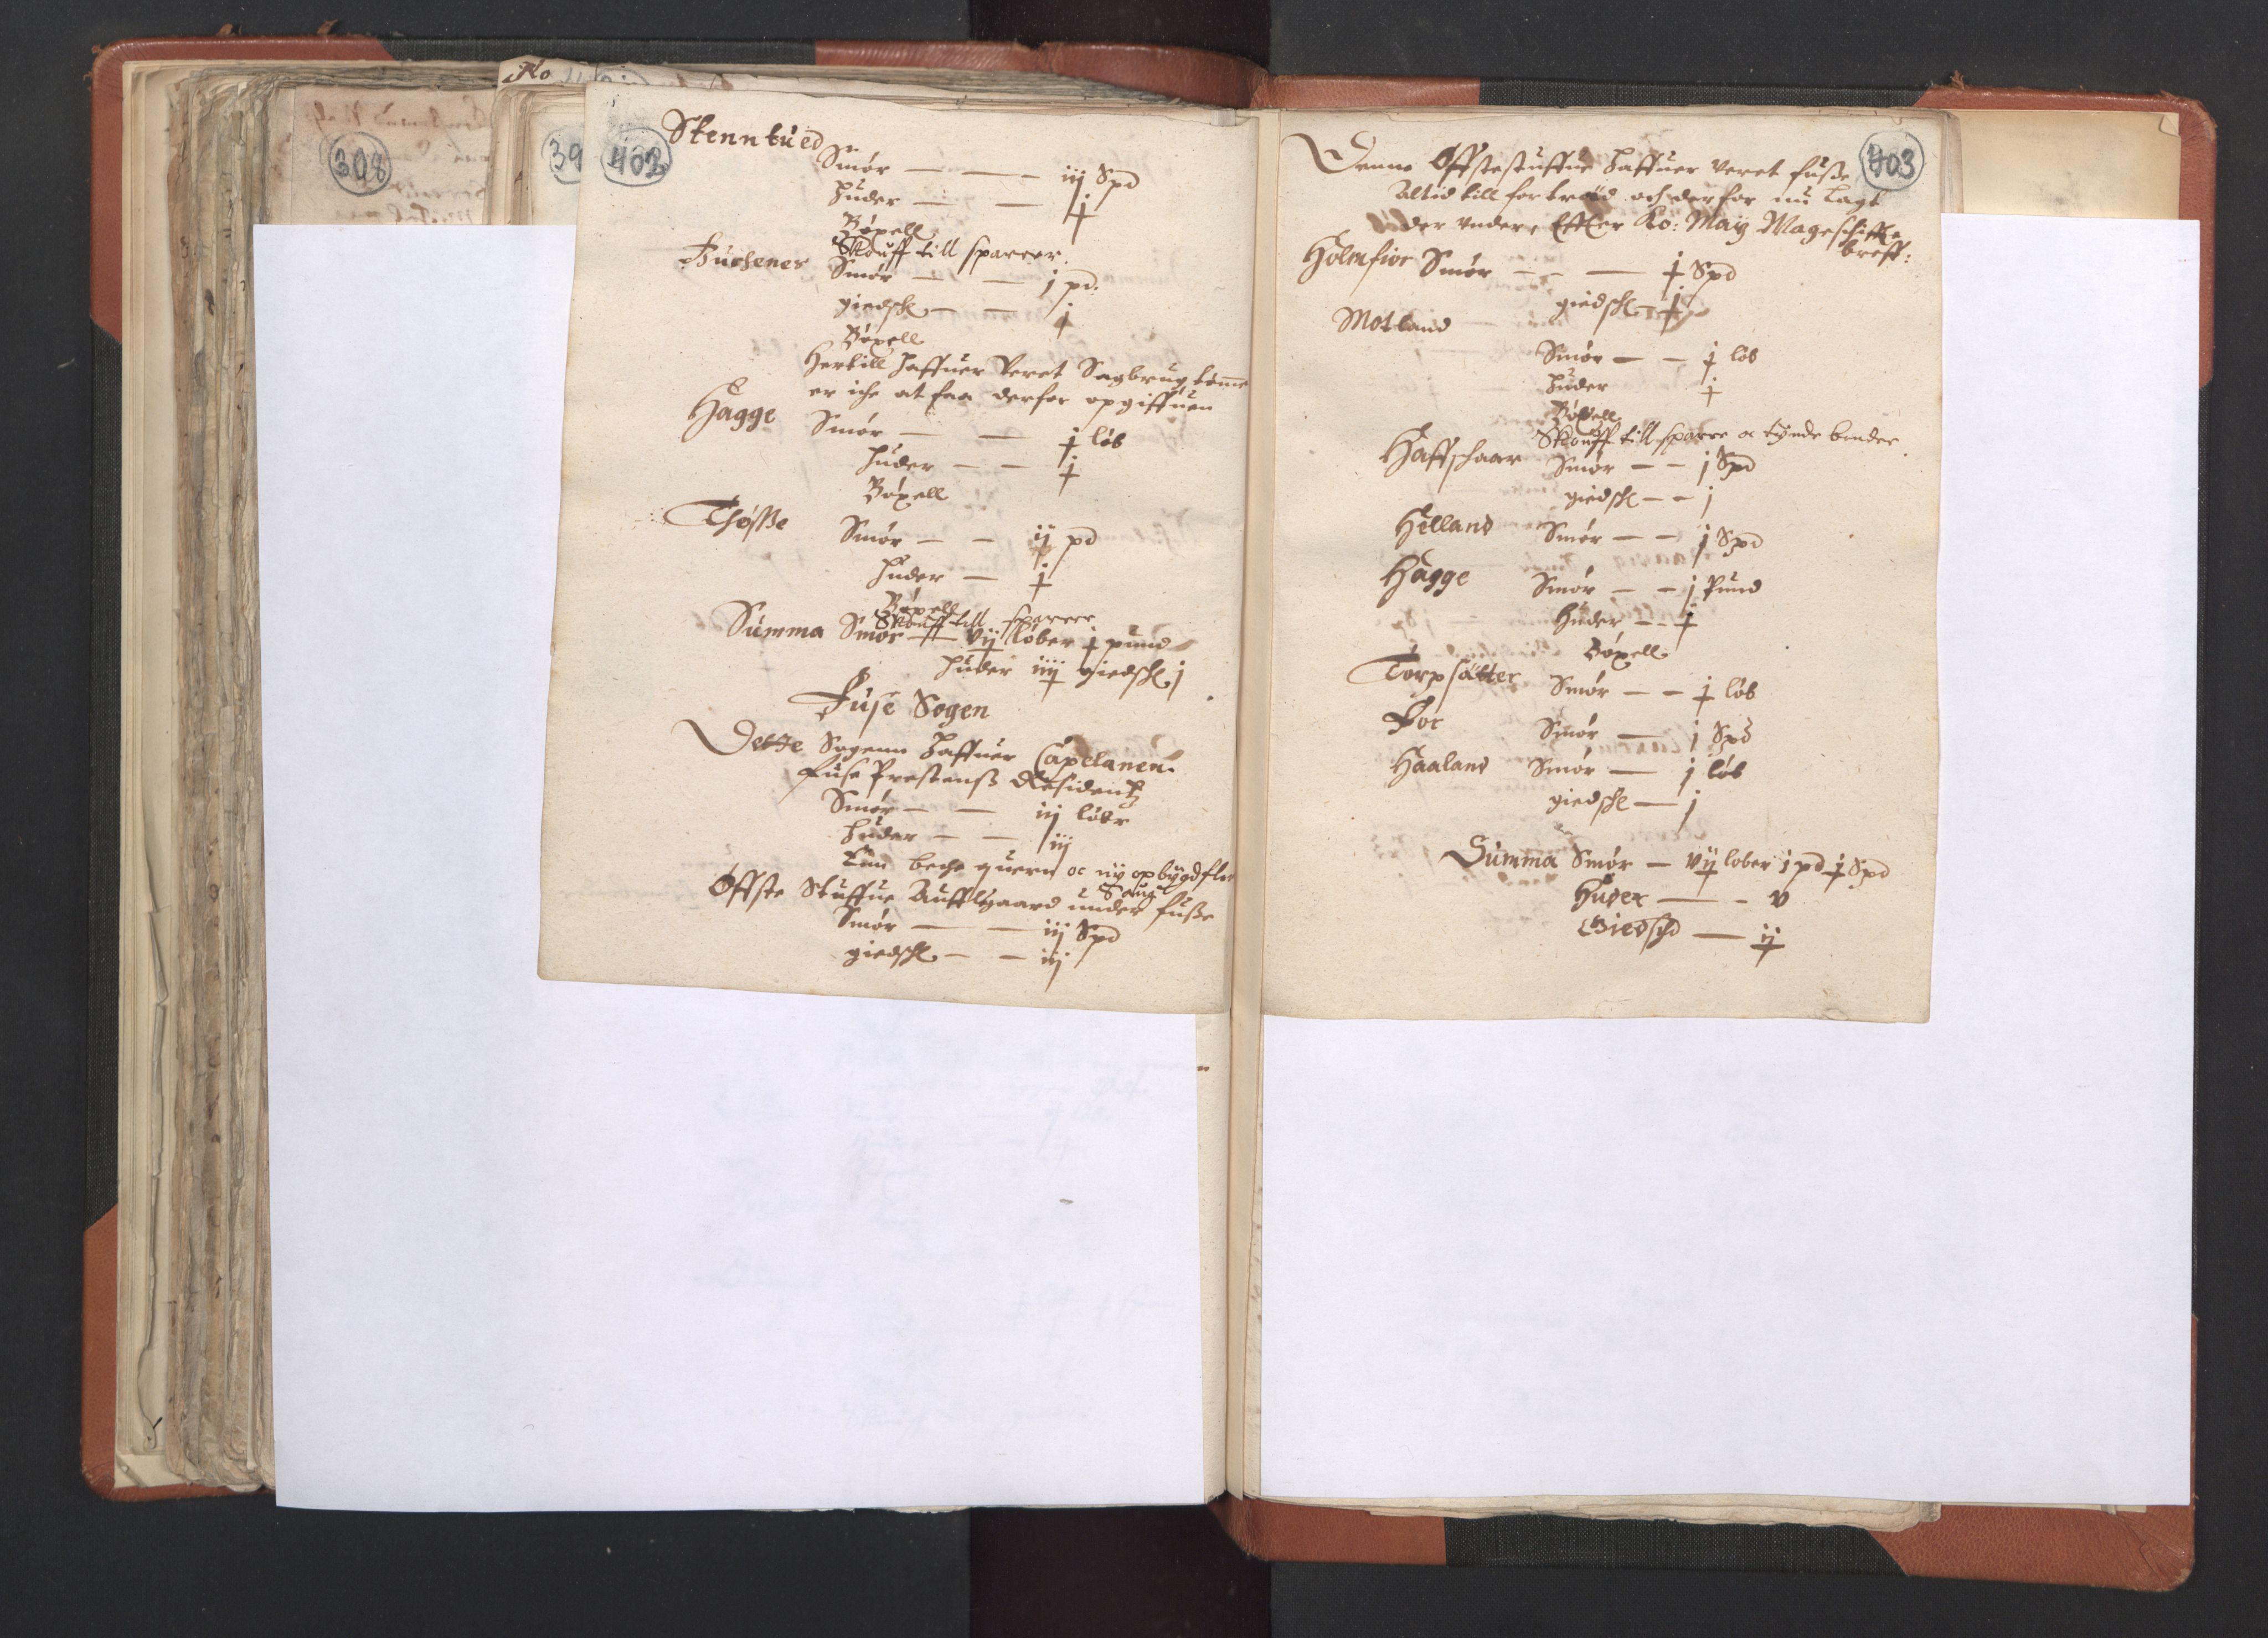 398
39
402
Stenntued
Smør — — — iij Spd
Huder — — j
Bøxell
Skouff till sparrer.
Buchenes Smør — — j pd.
giedsk — — j
Bøxell
Hertill haffuer Veret Sagbrug, tømmer
er iche at faa derfor opgiffuen
Hagge Smør — — j løb
Huder — — j
Bøxell
Thøsse Smør — — ij pd
Huder — j
Bøxell
Skouff till sparrer
Summa Smør — vij løber j pund
Huder iiij giedsk j
Fuse Sogen
Dette Sogenn haffuer Capelanen.
Fuse Prestenss Residentz
Smør — — iij løbr
Huder — — iij
Enn beche quern oc ny opbygd
Saug
Øffste Stuffue Auffelgaard under fusse
Smør — — iij Spd
giedsk — — iij
403
Denne Øffstestuffue haffuer veret fusse
Altid till fortreed och derfor nu Lagt
der under, Effter Ko: May Mageschiffte
breff:
Holmfior Smør — — j Spd
giedsk — j
Motland
Smør — — j løb
Huder j
Bøxell
Skouff till sparre oc tynde bender
Haffschaar Smør — — j Spd
giedsk — — j
Helland Smør — — j Spd
Hagge Smør — — j Pund
Huder — — j
Bøxell
Torpsätter Smør — — j løb
For Smør — j Spd
Haaland Smør — j løb
giedsk — j
Summa Smør — vij løber j pd j Spd
Huder — — v
Giedsk — ij